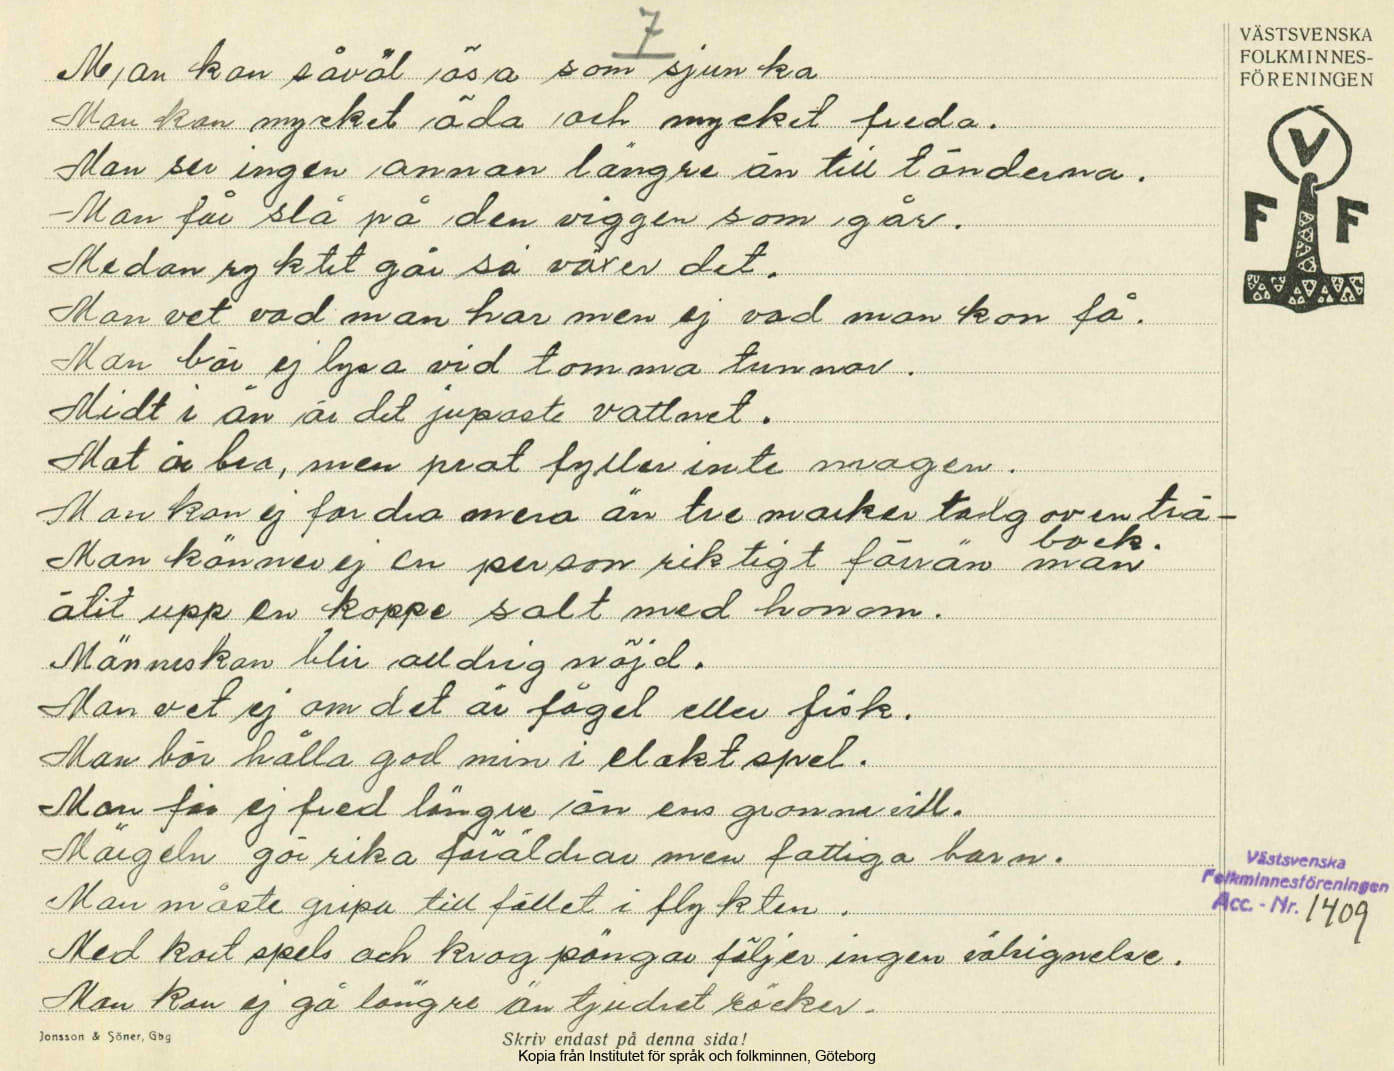 7
VÄSTSVENSKA
FOLKMINNES-
FÖRENINGEN
V
F F
Man kan såväl ösa som sjunka
Man kan mycket öda och mycket freda.
Man ser ingen annan längre än till tänderna.
Man får slå på den viggen som går.
Medan ryktet går så växer det.
Man vet vad man har men ej vad man kan få.
Man bör ej lysa vid tomma tunnor.
Midt i ån är det jupaste vattnet.
Mat är bra, men prat fyller inte magen.
Man kan ej fordra mera än tre marker talg av en trä-
bock.
Man känner ej en person riktigt förrän man
ätit upp en koppe salt med honom.
Människan blir alldrig nöjd.
Man vet ej om det är fågel eller fisk.
Man bör hålla god min i elakt spel.
Man får ej fred längre än ens granne vill.
Märgeln gör rika föräldrar men fattiga barn.
Man måste gripa till fället i flykten.
Med kort spels och krog pängar följer ingen välsignelse.
Man kan ej gå längre än tjudret räcker.
Västsvenska
Folkminnesföreningen
Acc. - Nr. 1409
Jonsson & Söner, Gbg
Skriv endast på denna sida!
Kopia från Institutet för språk och folkminnen, Göteborg